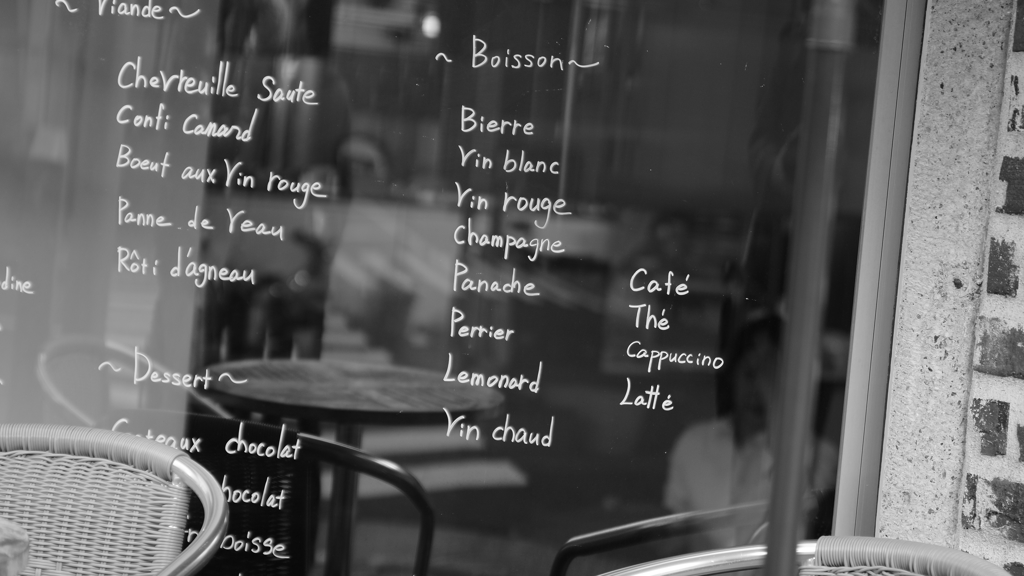 ~ Viande ~
Chevreuille Saute
Confi Canard
Boeuf aux Vin rouge
Panne de Veau
Rôti d'agneau
dine
~ Dessert ~
Gateaux chocolat
hocolat
~ Boisson ~
Bierre
Vin blanc
Vin rouge
Champagne
Panache
Perrier
Lemonard
Vin chaud
Café
Thé
Cappuccino
Latté